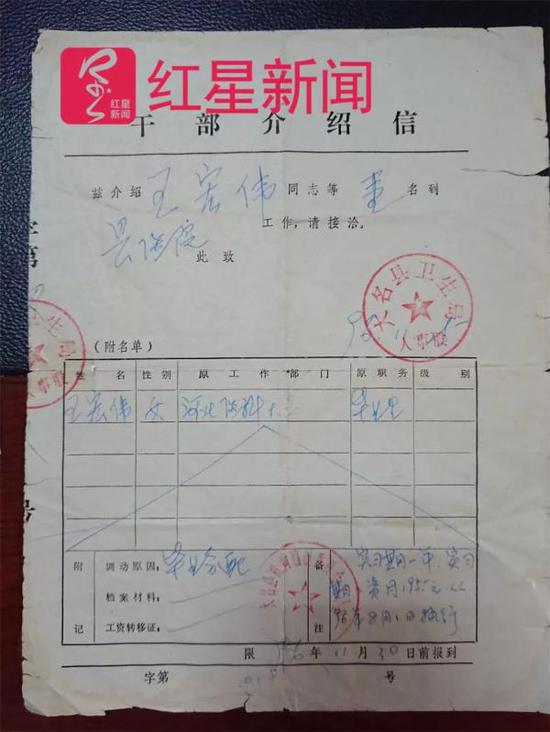 红星新闻
红星
新闻
干部介绍信
兹介绍 王宏伟 同志等 壹 名到
县医院 工作,请接洽。
此致
大名县卫生局
人事股
(附名单)
姓名 性别 原工作部门 原职务级别
王宏伟 女 河北医科大 毕业生
附记
调动原因: 毕业分配
档案材料:
工资转移证:
备注
实习期一年,实习
期月资195元
96年8月1日执行
限 96年11月30日前报到
字第 号